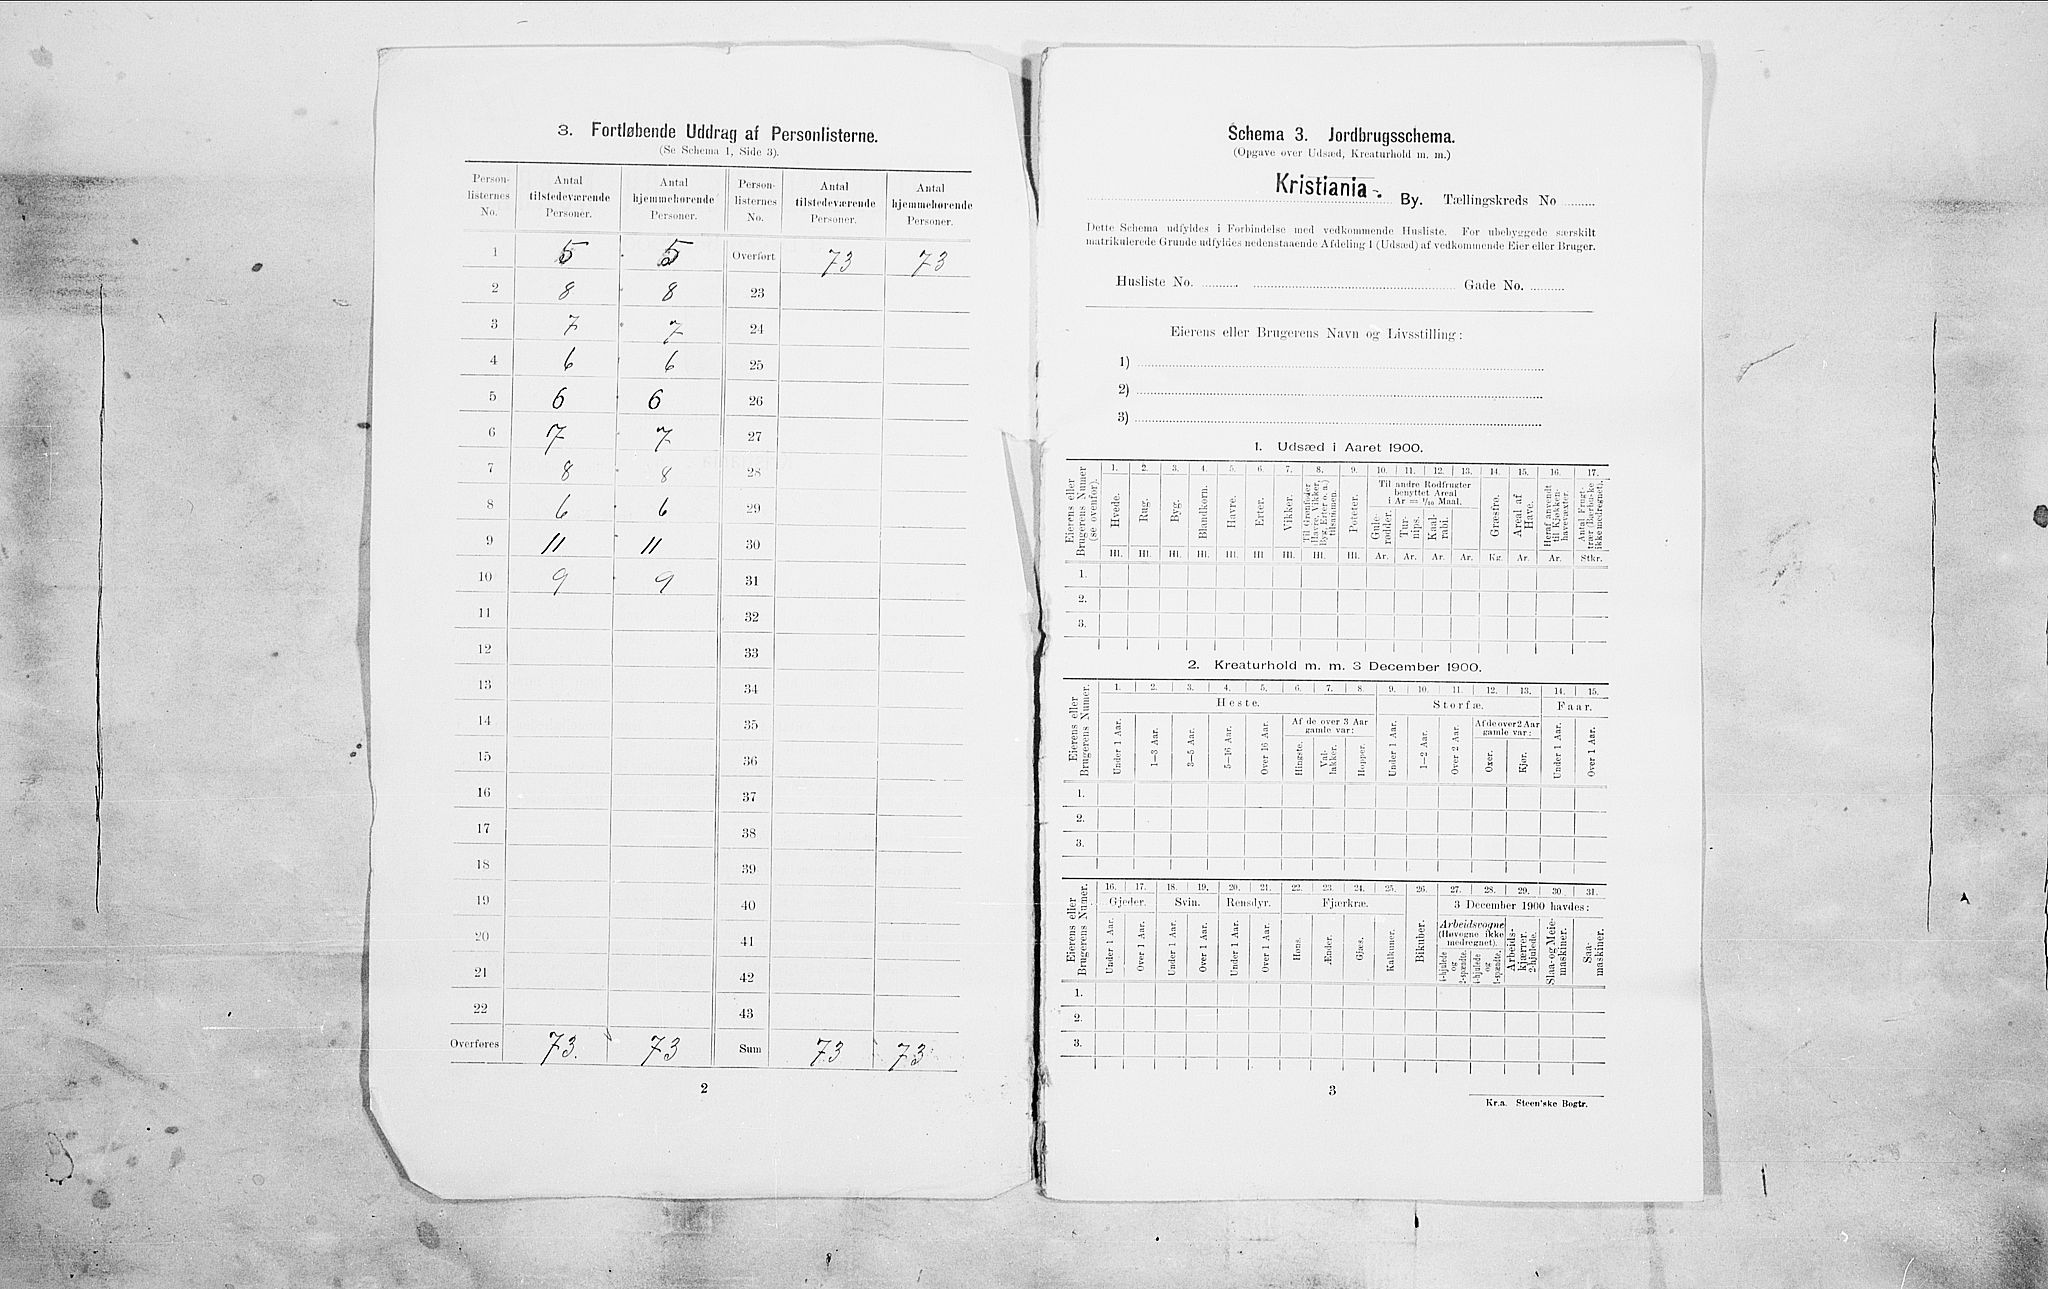 3. Fortløbende Uddrag af Personlisterne.
(Se Schema 1, Side 3).
Person-listernes No. Antal tilstedeværende Personer. Antal hjemmehørende Personer. Person-listernes No. Antal tilstedeværende Personer. Antal hjemmehørende Personer.
1 5 5 Overført 73 73
2 8 8 23
3 7 7 24
4 6 6 25
5 6 6 26
6 7 7 27
7 8 8 28
8 6 6 29
9 11 11 30
10 9 9 31
11 32
12 33
13 34
14 35
15 36
16 37
17 38
18 39
19 40
20 41
21 42
22 43
Overføres 73. 73 Sum 73 73
2
Schema 3. Jordbrugsschema.
(Opgave over Udsæd, Kreaturhold m. m.)
Kristiania. By. Tællingskreds No
Dette Schema udfyldes i Forbindelse med vedkommende Husliste. For ubebyggede særskilt
matrikulerede Grunde udfyldes nedenstaaende Afdeling 1 (Udsæd) af vedkommende Eier eller Bruger.
Husliste No. Gade No.
Eierens eller Brugerens Navn og Livsstilling:
1)
2)
3)
1. Udsæd i Aaret 1900.
Eierens eller Brugerens Numer (se ovenfor).
1. 2. 3. 4. 5. 6. 7. 8. 9. 10. 11. 12. 13. 14. 15. 16. 17.
Hvede. Rug. Byg. Blandkorn. Havre. Erter. Vikker. Til Grønfoder (Havre, Vikker, Byg, Erter o. a.) tilsammen. Poteter.
Til andre Rodfrugter benyttet Areal i Ar = 1/10 Maal.
Gule-rødder. Tur-nips. Kaal-rabi. Græsfrø. Areal af Have. Heraf anvendt til Kjøkken-havevæxter. Antal Frugt-trær (Bærbuske ikke medregnet).
Hl. Hl. Hl. Hl. Hl. Hl. Hl. Hl. Hl. Ar. Ar. Ar. Ar. Kg. Ar. Ar. Stkr.
1.
2.
3.
2. Kreaturhold m. m. 3 December 1900.
Eierens eller Brugerens Numer.
1. 2. 3. 4. 5. 6. 7. 8. 9. 10. 11. 12. 13. 14. 15.
Heste. Storfæ. Faar.
Under 1 Aar. 1—3 Aar. 3—5 Aar. 5—16 Aar. Over 16 Aar. Af de over 3 Aar gamle var: Hingste. Val-lakker. Hopper.
Under 1 Aar. 1—2 Aar. Over 2 Aar. Af de over 2 Aar gamle var: Oxer. Kjør. Under 1 Aar. Over 1 Aar.
1.
2.
3.
Eierens eller Brugerens Numer.
16. 17. 18. 19. 20. 21. 22. 23. 24. 25. 26. 27. 28. 29. 30. 31.
Gjeder. Svin. Rensdyr. Fjærkræ. 3 December 1900 havdes:
Under 1 Aar. Over 1 Aar. Under 1 Aar. Over 1 Aar. Under 1 Aar. Over 1 Aar. Høns. Ænder. Gjæs. Kalkuner. Bikuber.
Arbeidsvogne (Høvogne ikke medregnet). 4-hjulede og 2-spændte. 4-hjulede og 1-spændte. Arbeids-kjærrer, 2-hjulede. Slaa- og Meie-maskiner. Saa-maskiner.
1.
2.
3.
3
Kr.a. Steen'ske Bogtr.